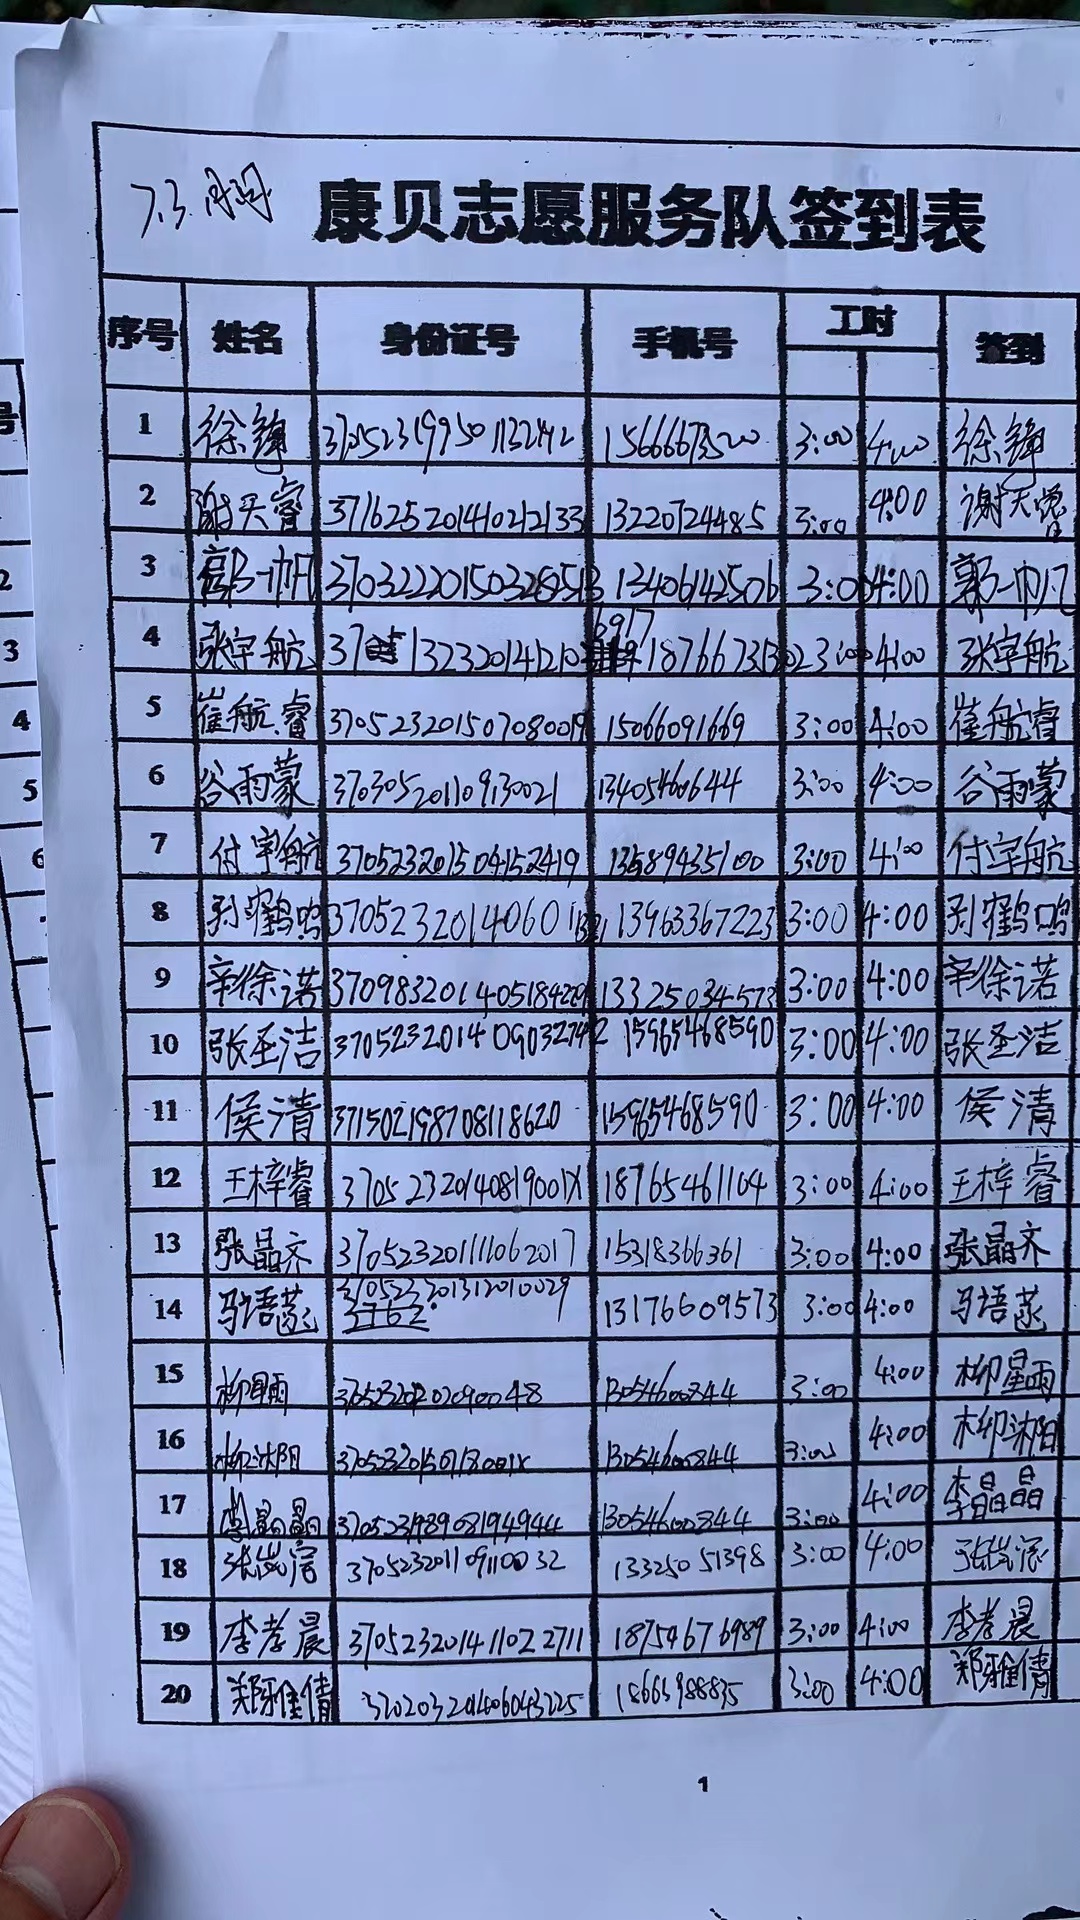 7.3.
康贝志愿服务队签到表
序号 姓名 身份证号 手机号 工时 签到
1 徐锋 3:00 4:00 徐锋
2 谢天睿 13220724485 3:00 4:00 谢天睿
3 郭一帆 13406142506 3:00 4:00 郭一帆
4 张宇航 3:00 4:00 张宇航
5 崔航睿 370523201507080019 15066091669 3:00 4:00 崔航睿
6 谷雨蒙 370305201109130021 13405460644 3:00 4:00 谷雨蒙
7 付宇航 370523201504152419 13589435100 3:00 4:00 付宇航
8 孙鹤鸣 13963367223 3:00 4:00 孙鹤鸣
9 辛徐诺 13325034573 3:00 4:00 辛徐诺
10 张圣洁 370523201409032742 15965468590 3:00 4:00 张圣洁
11 侯清 371502198708118620 15965468590 3:00 4:00 侯清
12 王梓睿 37052320140819001X 18765461164 3:00 4:00 王梓睿
13 张晶齐 370523201111062017 15318366361 3:00 4:00 张晶齐
14 马语菡 370523201312010029 13176609573 3:00 4:00 马语菡
15 柳星雨 13054600844 3:00 4:00 柳星雨
16 柳沐阳 13054600844 3:00 4:00 柳沐阳
17 李晶晶 370523198908194944 13054600844 3:00 4:00 李晶晶
18 370523201109110032 13325051398 3:00 4:00
19 李孝晨 370523201411022711 18754676989 3:00 4:00 李孝晨
20 郑雅倩 370203201406043225 18663988835 3:00 4:00 郑雅倩
1